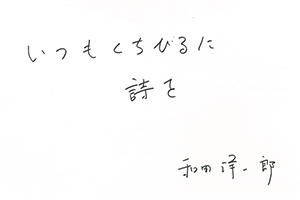 いつもくちびるに
詩を
和田洋一郎